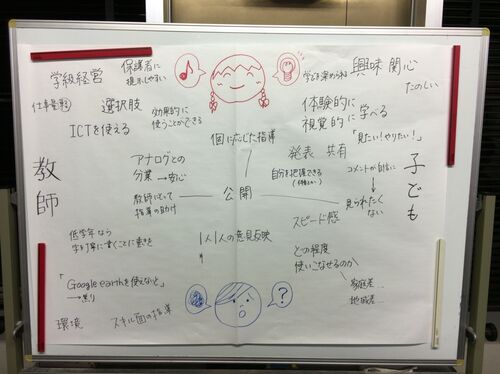 学級経営
保護者に
提示しやすい
学びを深められる
興味 関心
たのしい
仕事量
選択肢
効果的に
使うことができる
体験的に
視覚的に 学べる
「見たい!やりたい!」
ICTを使える
個に応じた指導
教師
アナログとの
分業 → 安心
発表 共有
自分を把握できる
コメントが自由に
子ども
教師にとって
指導の助け
公開
見られたく
ない
スピード感
低学年なら
字を丁寧に書くことに重きを
1人1人の意見反映
どの程度
使いこなせるのか
家庭差…
地域差…
「Google earthを使えないと」
→焦り
環境
スキル面の指導
?